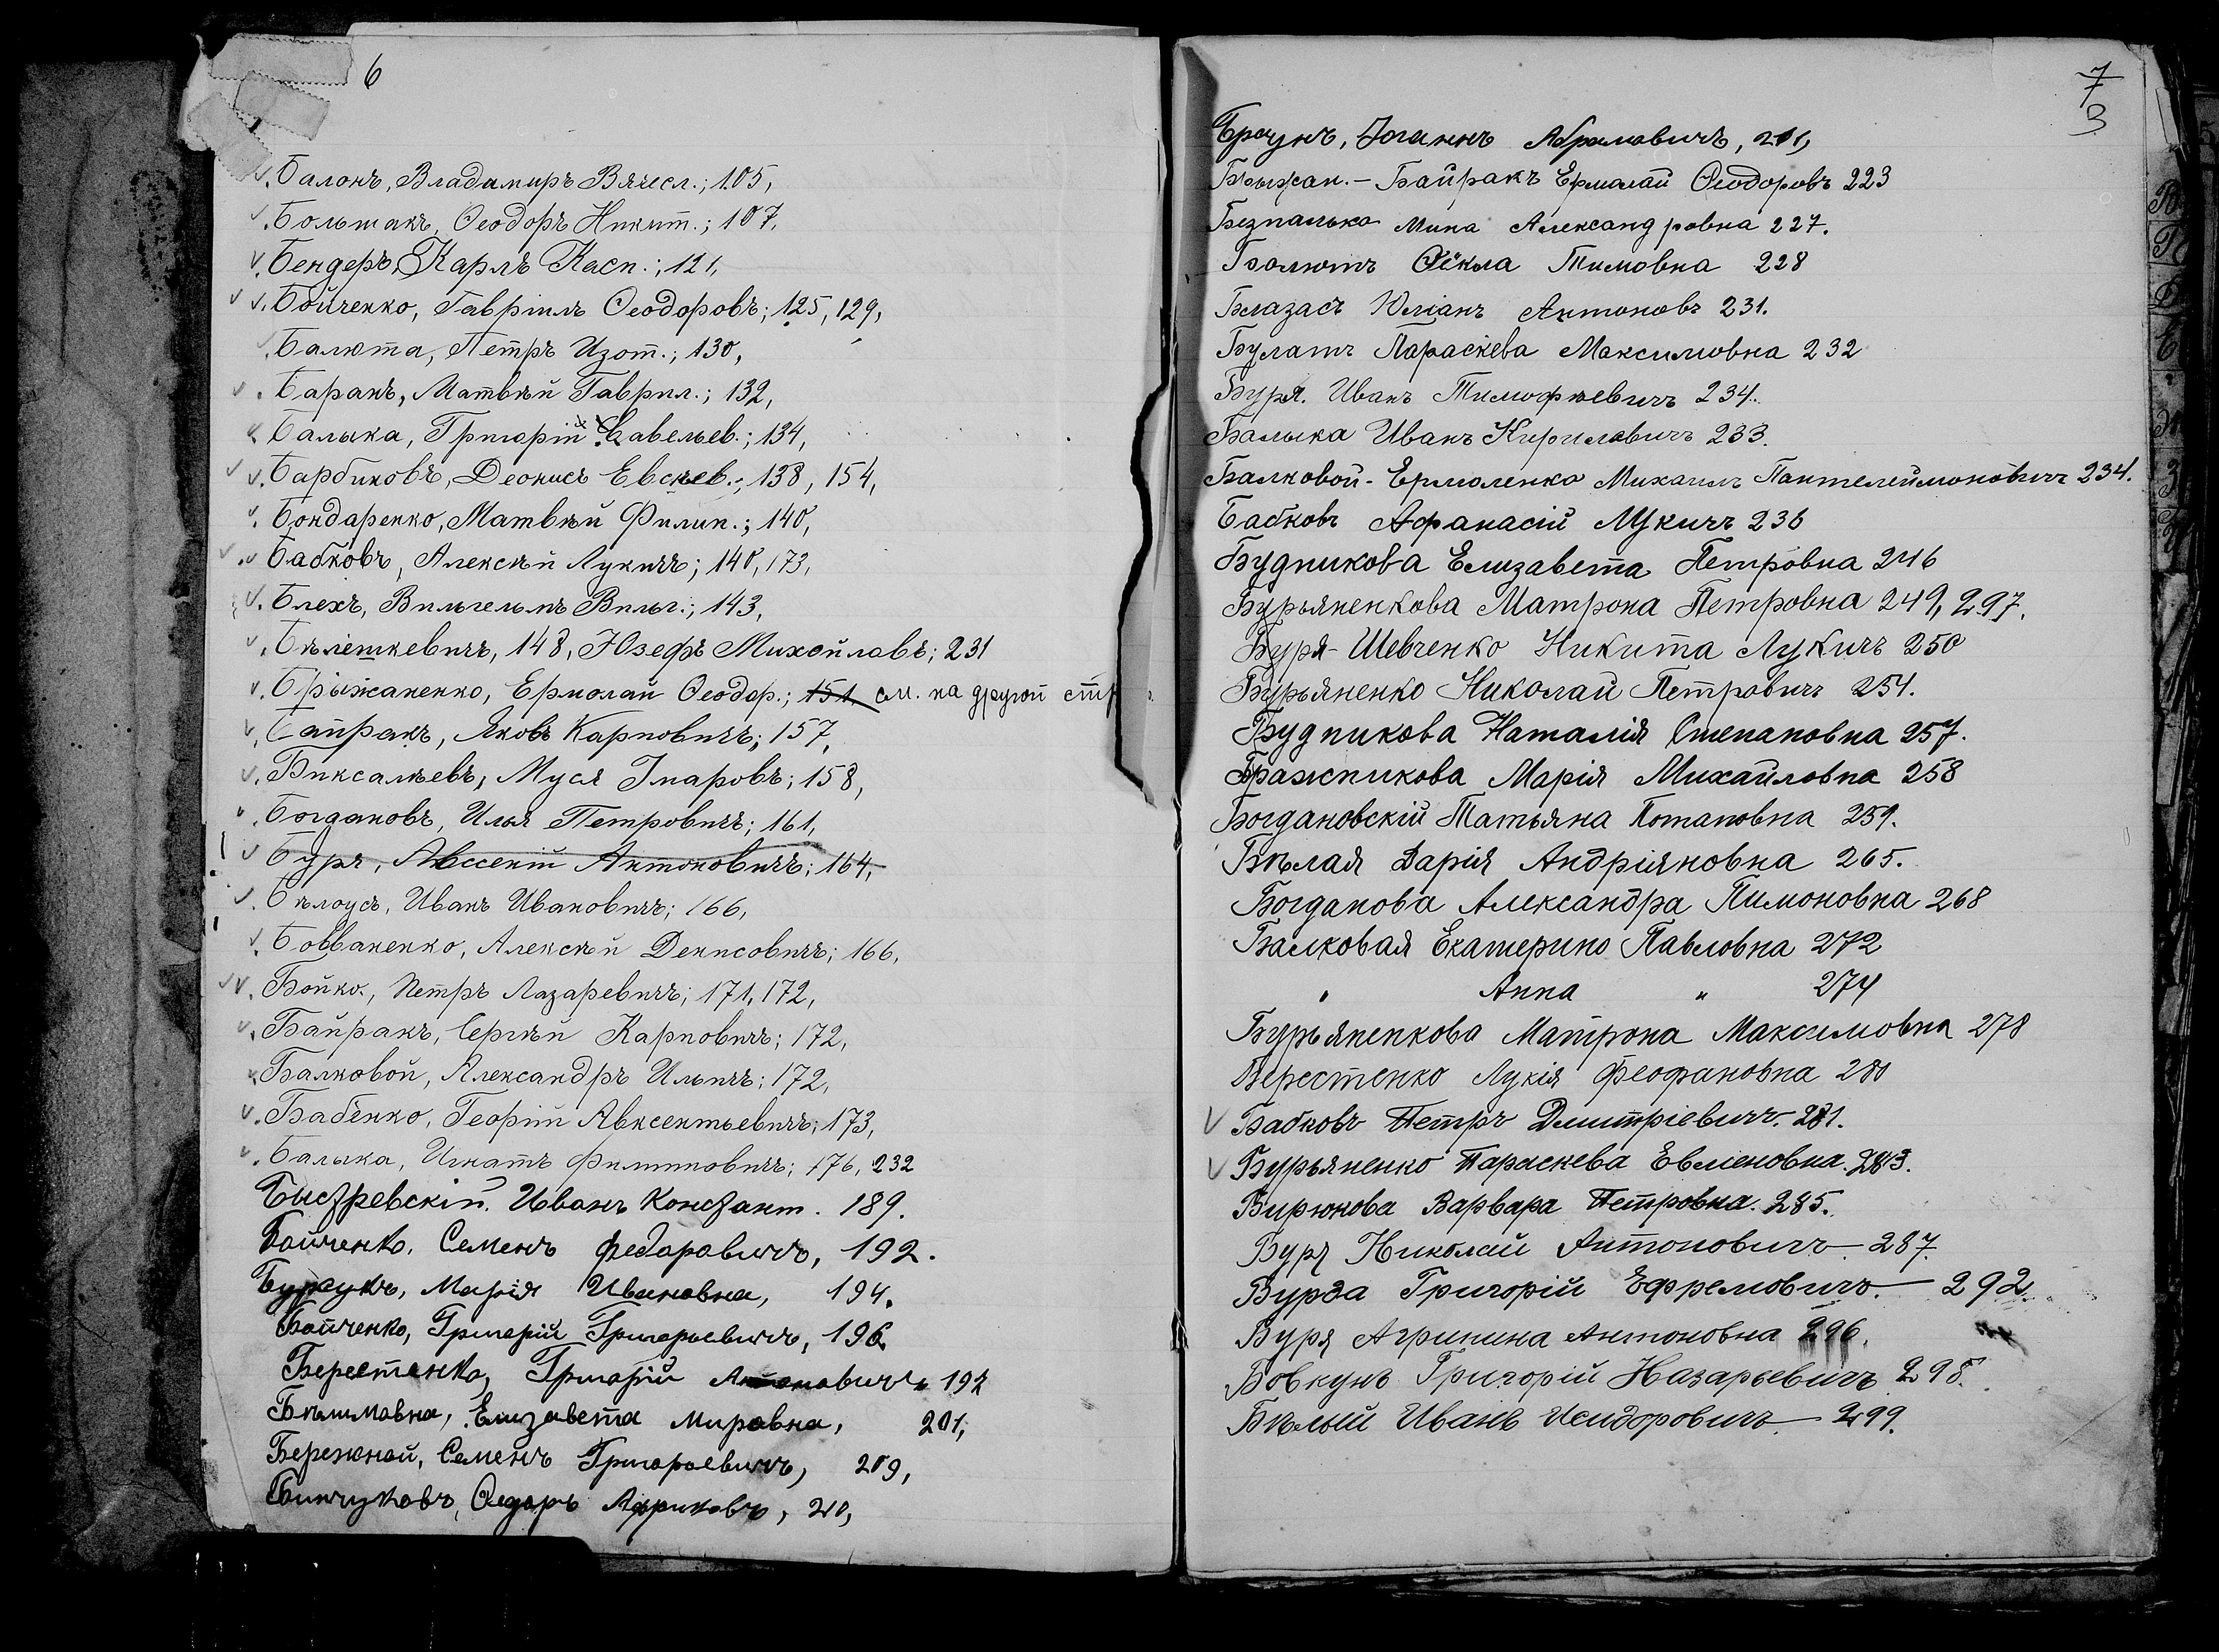 6
Балонъ, Владимиръ Вячесл.; 105,
Большакъ, Ѳеодоръ Никит.; 107,
Бендеръ, Карлъ Касп.; 121,
Бойченко, Гавріилъ Ѳеодоровъ; 125, 129,
Балюта, Петръ Изот.; 130,
Баранъ, Матвѣй Гаврил.; 132,
Балыка, Григорій Савельев.; 134,
Барбиковъ, Деонисъ Евсѣев.; 138, 154,
Бондаренко, Матвѣй Филип.; 140,
Бабковъ, Алексѣй Лукичъ; 140, 173,
Блехъ, Вильгельмъ Вильг.; 143,
Бѣлеткевичъ, 148, Юзефъ Михайловъ; 231
Брыжаненко, Ермолай Ѳеодор.; 151, см. на другой стр
Байракъ, Яковъ Карповичъ; 157,
Биксалѣевъ, Муся Інаровъ; 158,
Богдановъ, Илья Петровичъ; 161,
Буря, Авссентій Антоновичъ; 164,
Бѣлоусъ, Иванъ Ивановичъ; 166,
Бовваненко, Алексѣй Денисовичъ; 166,
Бойко, Петръ Лазаревичъ; 171, 172,
Байракъ, Сергѣй Карповичъ; 172,
Балковой, Александръ Ильичъ; 172,
Бабенко, Георгій Авксентьевичъ; 173,
Балыка, Игнатъ Филипповичъ; 176, 232
Быстревскій. Иванъ Констант. 189.
Бойченко, Семенъ Федоровичъ, 192.
Марія Ивановна, 194.
Бойченко, Григорій Григорьевичъ, 196
Берестенко, Григорій Антоновичъ 197
Бѣлимовна, Елизавета Мировна, 201,
Бережной, Семенъ Григорьевичъ, 209,
Ѳедоръ 210,
7
3
Браунъ, Іоганнъ Абрамовичъ, 211,
Брыжан.- Байракъ Ермолай Ѳеодоровъ 223
Безпалько Мина Александровна 227.
Балютъ Ѳёкла Тимовна 228
Блазасъ Юліанъ Антоновъ 231.
Булатъ Параскева Максимовна 232
Буря. Иванъ Тимофѣевичъ 234.
Балыка Иванъ Кириловичъ 233.
Балковой- Ермоленко Михаилъ Пантелеймоновичъ 234.
Бабковъ Афанасій Лукичъ 236
Будникова Елизавета Петровна 246
Бурьяненкова Матрона Петровна 249, 297.
Буря- Шевченко Никита Лукичъ 250
Бурьяненко Николай Петровичъ 254.
Будникова Наталія Степановна 257.
Бражникова Марія Михайловна 258
Богдановскій Татьяна Потаповна 259.
Бѣлая Дарія Андріяновна 265.
Богданова Александра Пимоновна 268
Балковая Екатерино Павловна 272
" Анна " 274
Бурьяненкова Матрона Максимовна 278
Берестенко Лукія Феофановна 280
Бабковъ Петръ Дмитріевичъ. 281.
Бурьяненко Параскева Евленовна. 283.
Бирюкова Варвара Петровна. 285.
Буря Николай Антоновичъ 287.
Бурза Григорій Ефремовичъ.— 292.
Буря Агрипина Антоновна 296.
Бовкунъ Григорій Назарьевичъ 298.
Бѣлый Иванъ Исидоровичъ — 299.